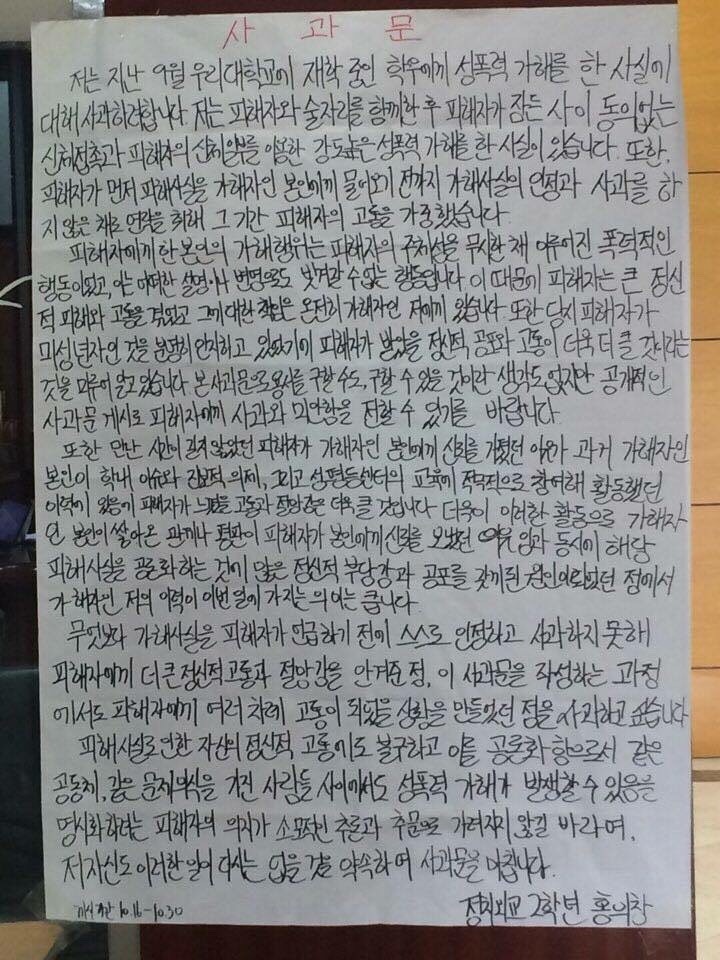 사 과 문
저는 지난 9월 우리대학교에 재학 중인 학우에게 성폭력 가해를 한 사실에
대해 사과하려합니다. 저는 피해자와 술자리를 함께한 후 피해자가 잠든 사이 동의없는
신체접촉과 피해자의 신체일부를 이용한 강도높은 성폭력 가해를 한 사실이 있습니다. 또한,
피해자가 먼저 피해사실을 가해자인 본인에게 물어오기 전까지 가해사실의 인정과 사과를 하
지 않은 채로 연락을 취해 그 기간 피해자의 고통을 가중했습니다.
피해자에게 한 본인의 가해행위는 피해자의 주체성을 무시한 채 이루어진 폭력적인
행동이었고, 이는 어떠한 설명이나 변명으로도 벗겨갈 수 없는 행동입니다. 이 때문에 피해자는 큰 정신
적 피해와 고통을 겪었고 그에 대한 책임은 온전히 가해자인 저에게 있습니다. 또한 당시 피해자가
미성년자인 것을 분명히 인지하고 있었기에 피해자가 받았을 정신적 공포와 고통이 더욱 더 클 것이라는
것을 미루어 알고 있습니다. 본 사과문으로 용서를 구할 수도, 구할 수 있을 것이란 생각도 없지만 공개적인
사과문 게시로 피해자에게 사과와 미안함을 전할 수 있기를 바랍니다.
또한 만난 시간이 길지 않았던 피해자가 가해자인 본인에게 신뢰를 가졌던 이유가 과거 가해자인
본인이 학내 이슈와 진보적 의제, 그리고 성평등센터의 교육에 적극적으로 참여해 활동했던
이력이 있음에 피해자가 느꼈을 고통과 절망감은 더욱 클 것입니다. 더욱이 이러한 활동으로 가해자
인 본인이 쌓아온 관계나 평판이 피해자가 본인에게 신뢰를 보냈던 이유임과 동시에 해당
피해사실을 공론화하는 것에 많은 정신적 부담감과 공포를 갖게된 원인이 되었던 점에서
가해자인 저의 이력이 이번 일에 가지는 의미는 큽니다.
무엇보다 가해사실을 피해자가 언급하기 전에 스스로 인정하고 사과하지 못해
피해자에게 더 큰 정신적 고통과 절망감을 안겨준 점, 이 사과문을 작성하는 과정
에서도 피해자에게 여러 차례 고통이 되었을 상황을 만들었던 점을 사과하고 싶습니다
피해사실로 인한 자신의 정신적 고통에도 불구하고 이를 공론화 함으로서 같은
공동체, 같은 문제의식을 가진 사람들 사이에서도 성폭력 가해가 발생할 수 있음을
명시화하려는 피해자의 의지가 소모적인 추론과 추문으로 가려지지 않길 바라며,
저 자신도 이러한 일이 다시는 없을 것을 약속하며 사과문을 마칩니다.
게시기간 10.16-10.30
정치외교 2학년 홍의창